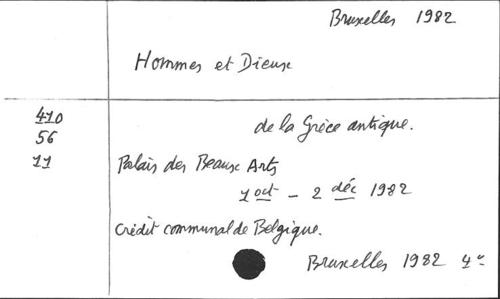 Bruxelles 1982
Hommes et Dieux
410
56
11
de la Grèce antique.
Palais des Beaux Arts
1 oct - 2 déc 1982
Crédit communal de Belgique.
Bruxelles 1982 4°